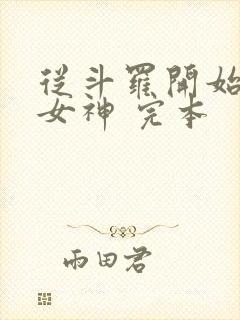 從斗羅開始
女神 完本
雨田君